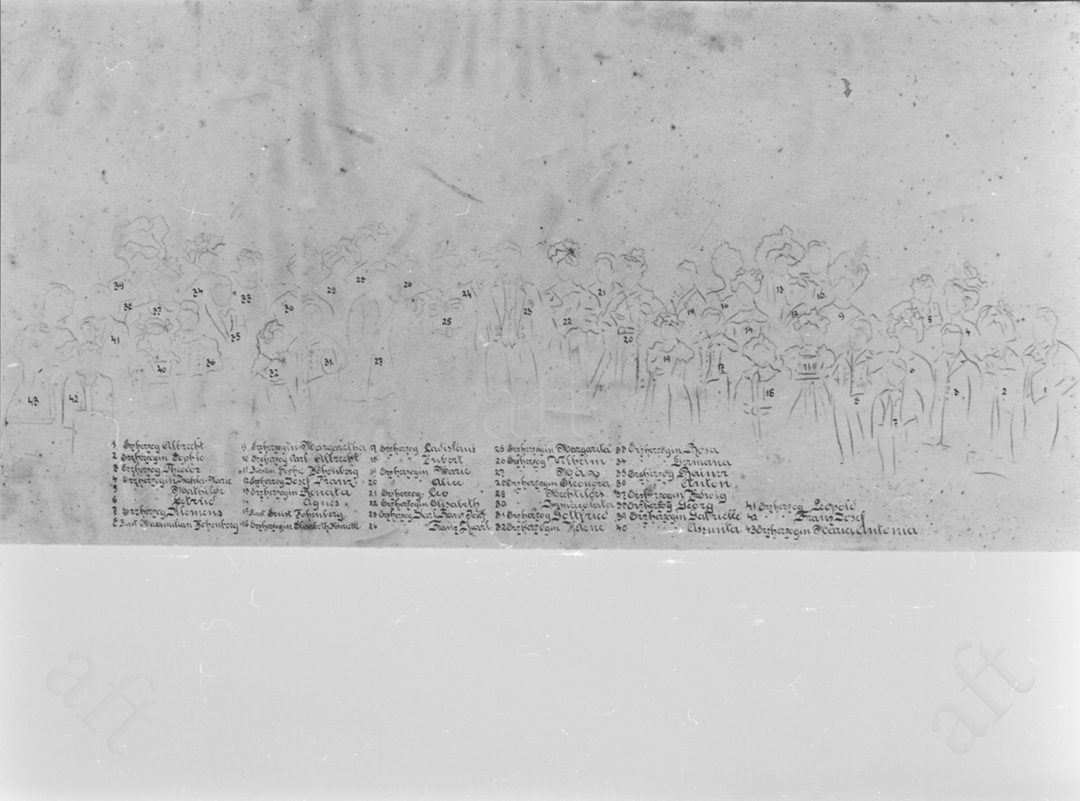 1 Erzherzog Albrecht
2 Erzherzogin Sophie
3 Erzherzog Theodor
4 Erzherzogin Isabella-Marie
5 Mathilde
6 Hedwig
7 Erzherzog Klemens
8 Fürst Maximilian Hohenberg
9 Erzherzogin Margaretha
10 Erzherzog Carl Albrecht
11 Fürstin Sophie Hohenberg
12 Erzherzog Josef Franz
13 Erzherzogin Renata
14 Agnes
15 Fürst Ernst Hohenberg
16 Erzherzogin Elisabeth
Erzherzog Ladislaus
18 Hubert
19 Erzherzogin Marie
20 Alice
21 Erzherzog Leo
22 Erzherzogin Elisabeth
23 Erzherzog Karl Franz Josef
24 Franz Karl
25 Erzherzogin Margarita
26 Erzherzog Wilhelm
27 Max
Erzherzogin Eleonora
29 Mechtildis
30 Immaculata
31 Erzherzog Gottfried
32 Erzherzogin Helene
33 Erzherzogin Rosa
34 Germana
35 Erzherzog Rainer
36 Anton
37 Erzherzogin Hedwig
38 Erzherzog Georg
39 Erzherzogin Gabrielle
40 Assunta
41 Erzherzog Leopold
42 Franz Josef
43 Erzherzogin Maria Antonia
aft
aft